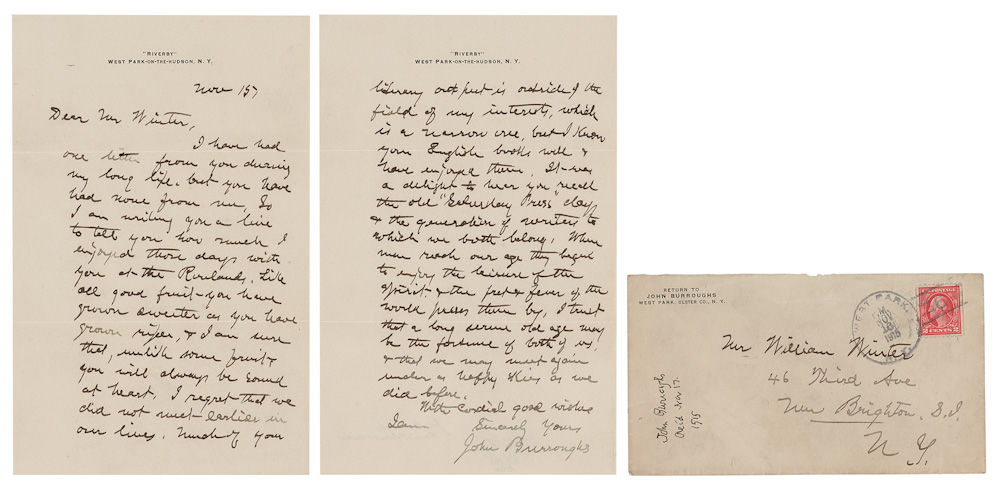 "RIVERBY"
WEST PARK-ON-THE-HUDSON, N. Y.
Nov 15,
Dear Mr Winter,
I have had
one letter from you during
my long life, but you have
had none from me, So
I am writing you a line
to tell you how much I
enjoyed those days with
you at the Rowlands. Like
all good fruit you have
grown sweeter as you have
grown riper, & I am sure
that, unlike some fruit,
you will always be sound
at heart. I regret that we
did not meet earlier in
our lives. Much of your
"RIVERBY"
WEST PARK-ON-THE-HUDSON, N. Y.
literary output is outside of the
field of my interests, which
is a narrow one, but I know
your English books well &
have enjoyed them. It was
a delight to hear you recall
the old "Saturday Press" days
& the generation of writers to
which we both belong. When
men reach our age they begin
to enjoy the leisure of the
spirit & the fret & fever of the
world passes them by. I trust
that a long serene old age may
be the fortune of both of us,
& that we may meet again
under as happy skies as we
did before.
With cordial good wishes
I am Sincerely Yours
John Burroughs
RETURN TO
JOHN BURROUGHS
WEST PARK, ULSTER CO., N. Y.
WEST PARK
NOV
1915
N.Y.
U.S. POSTAGE
2 CENTS 2
Mr William Winter
46 Third Ave
New Brighton, S.I.
N.Y.
John Burroughs
Rec'd Nov. 17.
1915